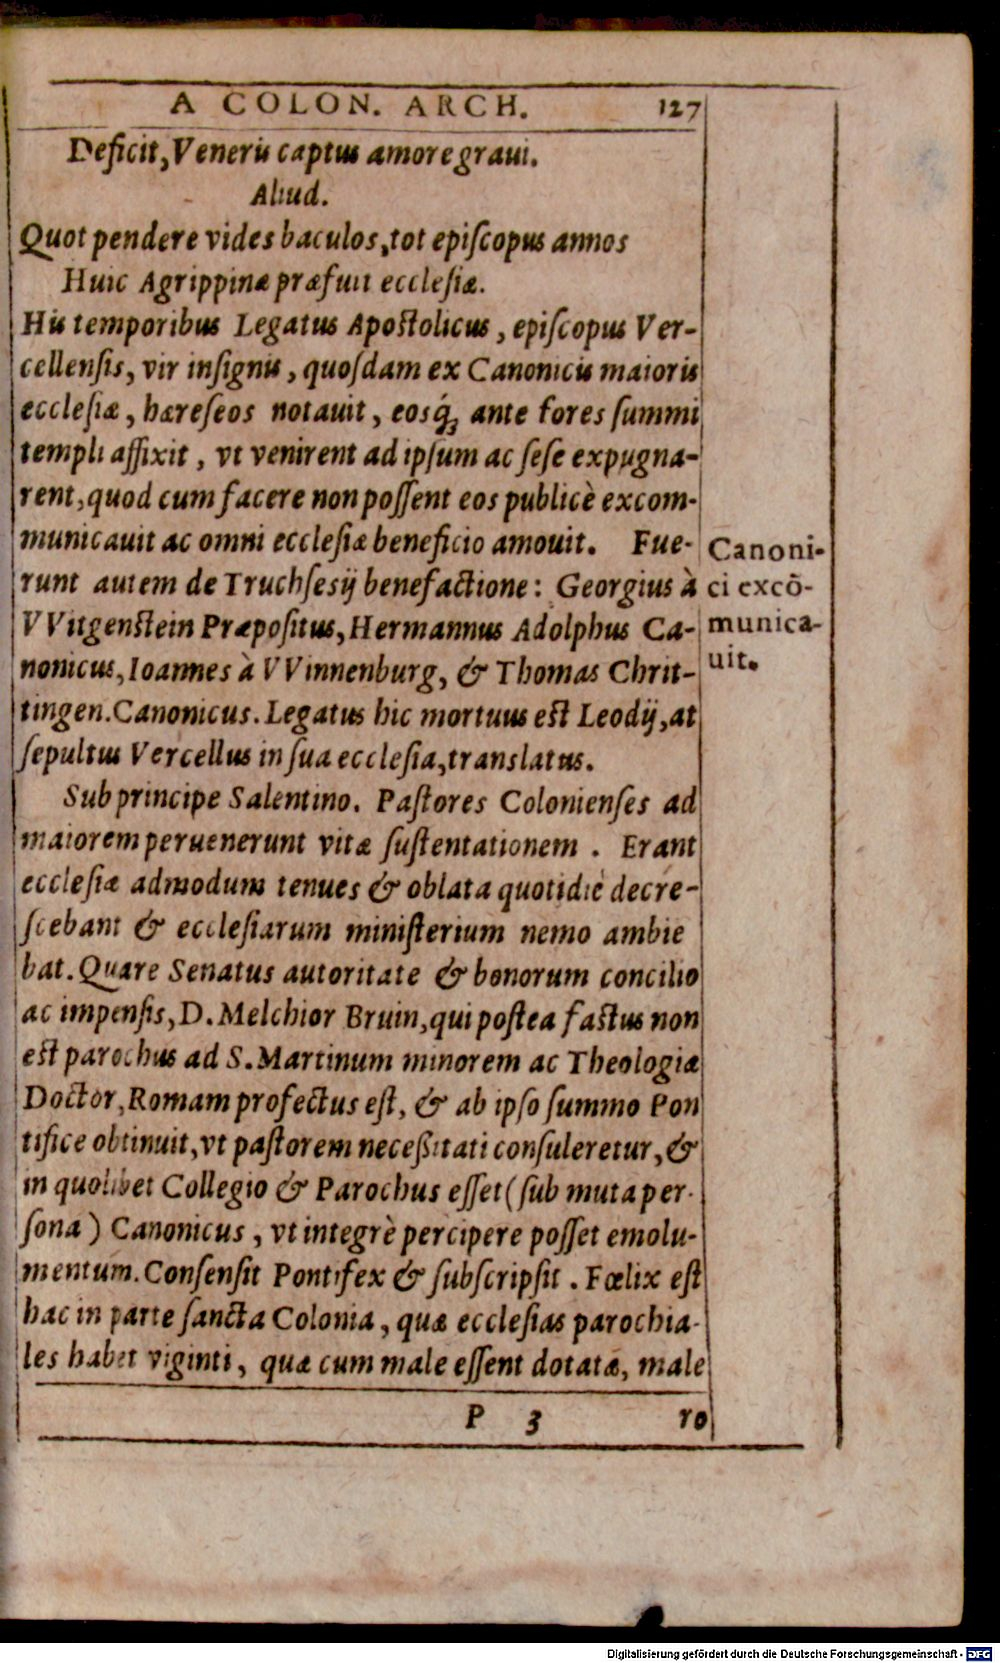 A COLON. ARCH. 127
Deficit, Veneris captus amore graui.
Aliud.
Quot pendere vides baculos, tot episcopus annos
Huic Agrippinæ præfuit ecclesiæ.
His temporibus Legatus Apostolicus, episcopus Ver-
cellensis, vir insignis, quosdam ex Canonicis maioris
ecclesiæ, hæreseos notauit, eosq́ꝫ ante fores summi
templi affixit, vt venirent ad ipsum ac sese expugna-
rent, quod cum facere non possent eos publicè excom-
municauit ac omni ecclesiæ beneficio amouit. Fue-
runt autem de Truchsesij benefactione: Georgius à
VVitgenstein Præpositus, Hermannus Adolphus Ca-
nonicus, Ioannes à VVinnenburg, & Thomas Chrit-
tingen. Canonicus. Legatus hic mortuus est Leodij, at
sepultus Vercellus in sua ecclesia, translatus.
Canoni-
ci excõ-
munica-
uit.
Sub principe Salentino. Pastores Colonienses ad
maiorem peruenerunt vitæ sustentationem. Erant
ecclesiæ admodum tenues & oblata quotidiè decre-
scebant & ecclesiarum ministerium nemo ambie
bat. Quare Senatus autoritate & bonorum concilio
ac impensis, D. Melchior Bruin, qui postea factus non
est parochus ad S. Martinum minorem ac Theologiæ
Doctor, Romam profectus est, & ab ipso summo Pon
tifice obtinuit, vt pastorem necessitati consuleretur, &
in quolibet Collegio & Parochus esset (sub muta per-
sona) Canonicus, vt integrè percipere posset emolu-
mentum. Consensit Pontifex & subscripsit. Fœlix est
hac in parte sancta Colonia, quæ ecclesias parochia-
les habet viginti, quæ cum male essent dotatæ, male
P 3 ro
Digitalisierung gefördert durch die Deutsche Forschungsgemeinschaft - DFG